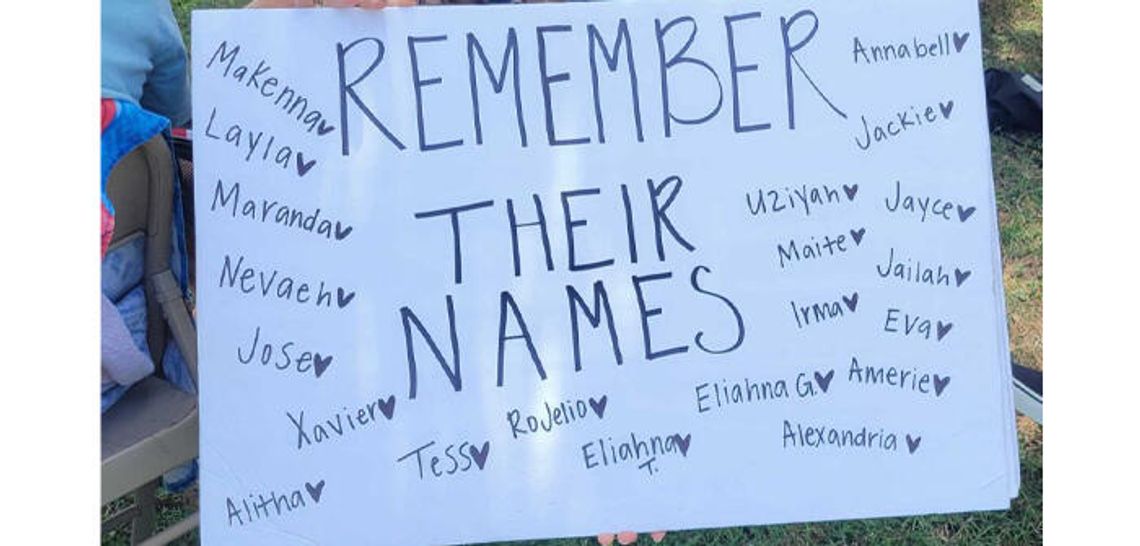 REMEMBER
THEIR
NAMES
Makenna♥
Layla♥
Maranda♥
Nevaeh♥
Jose♥
Xavier♥
Tess♥
Alitha♥
Rojelio♥
Eliahna♥
T.
Annabell♥
Jackie♥
Uziyah♥
Jayce♥
Maite♥
Jailah♥
Irma♥
Eva♥
Eliahna G.♥
Amerie♥
Alexandria ♥